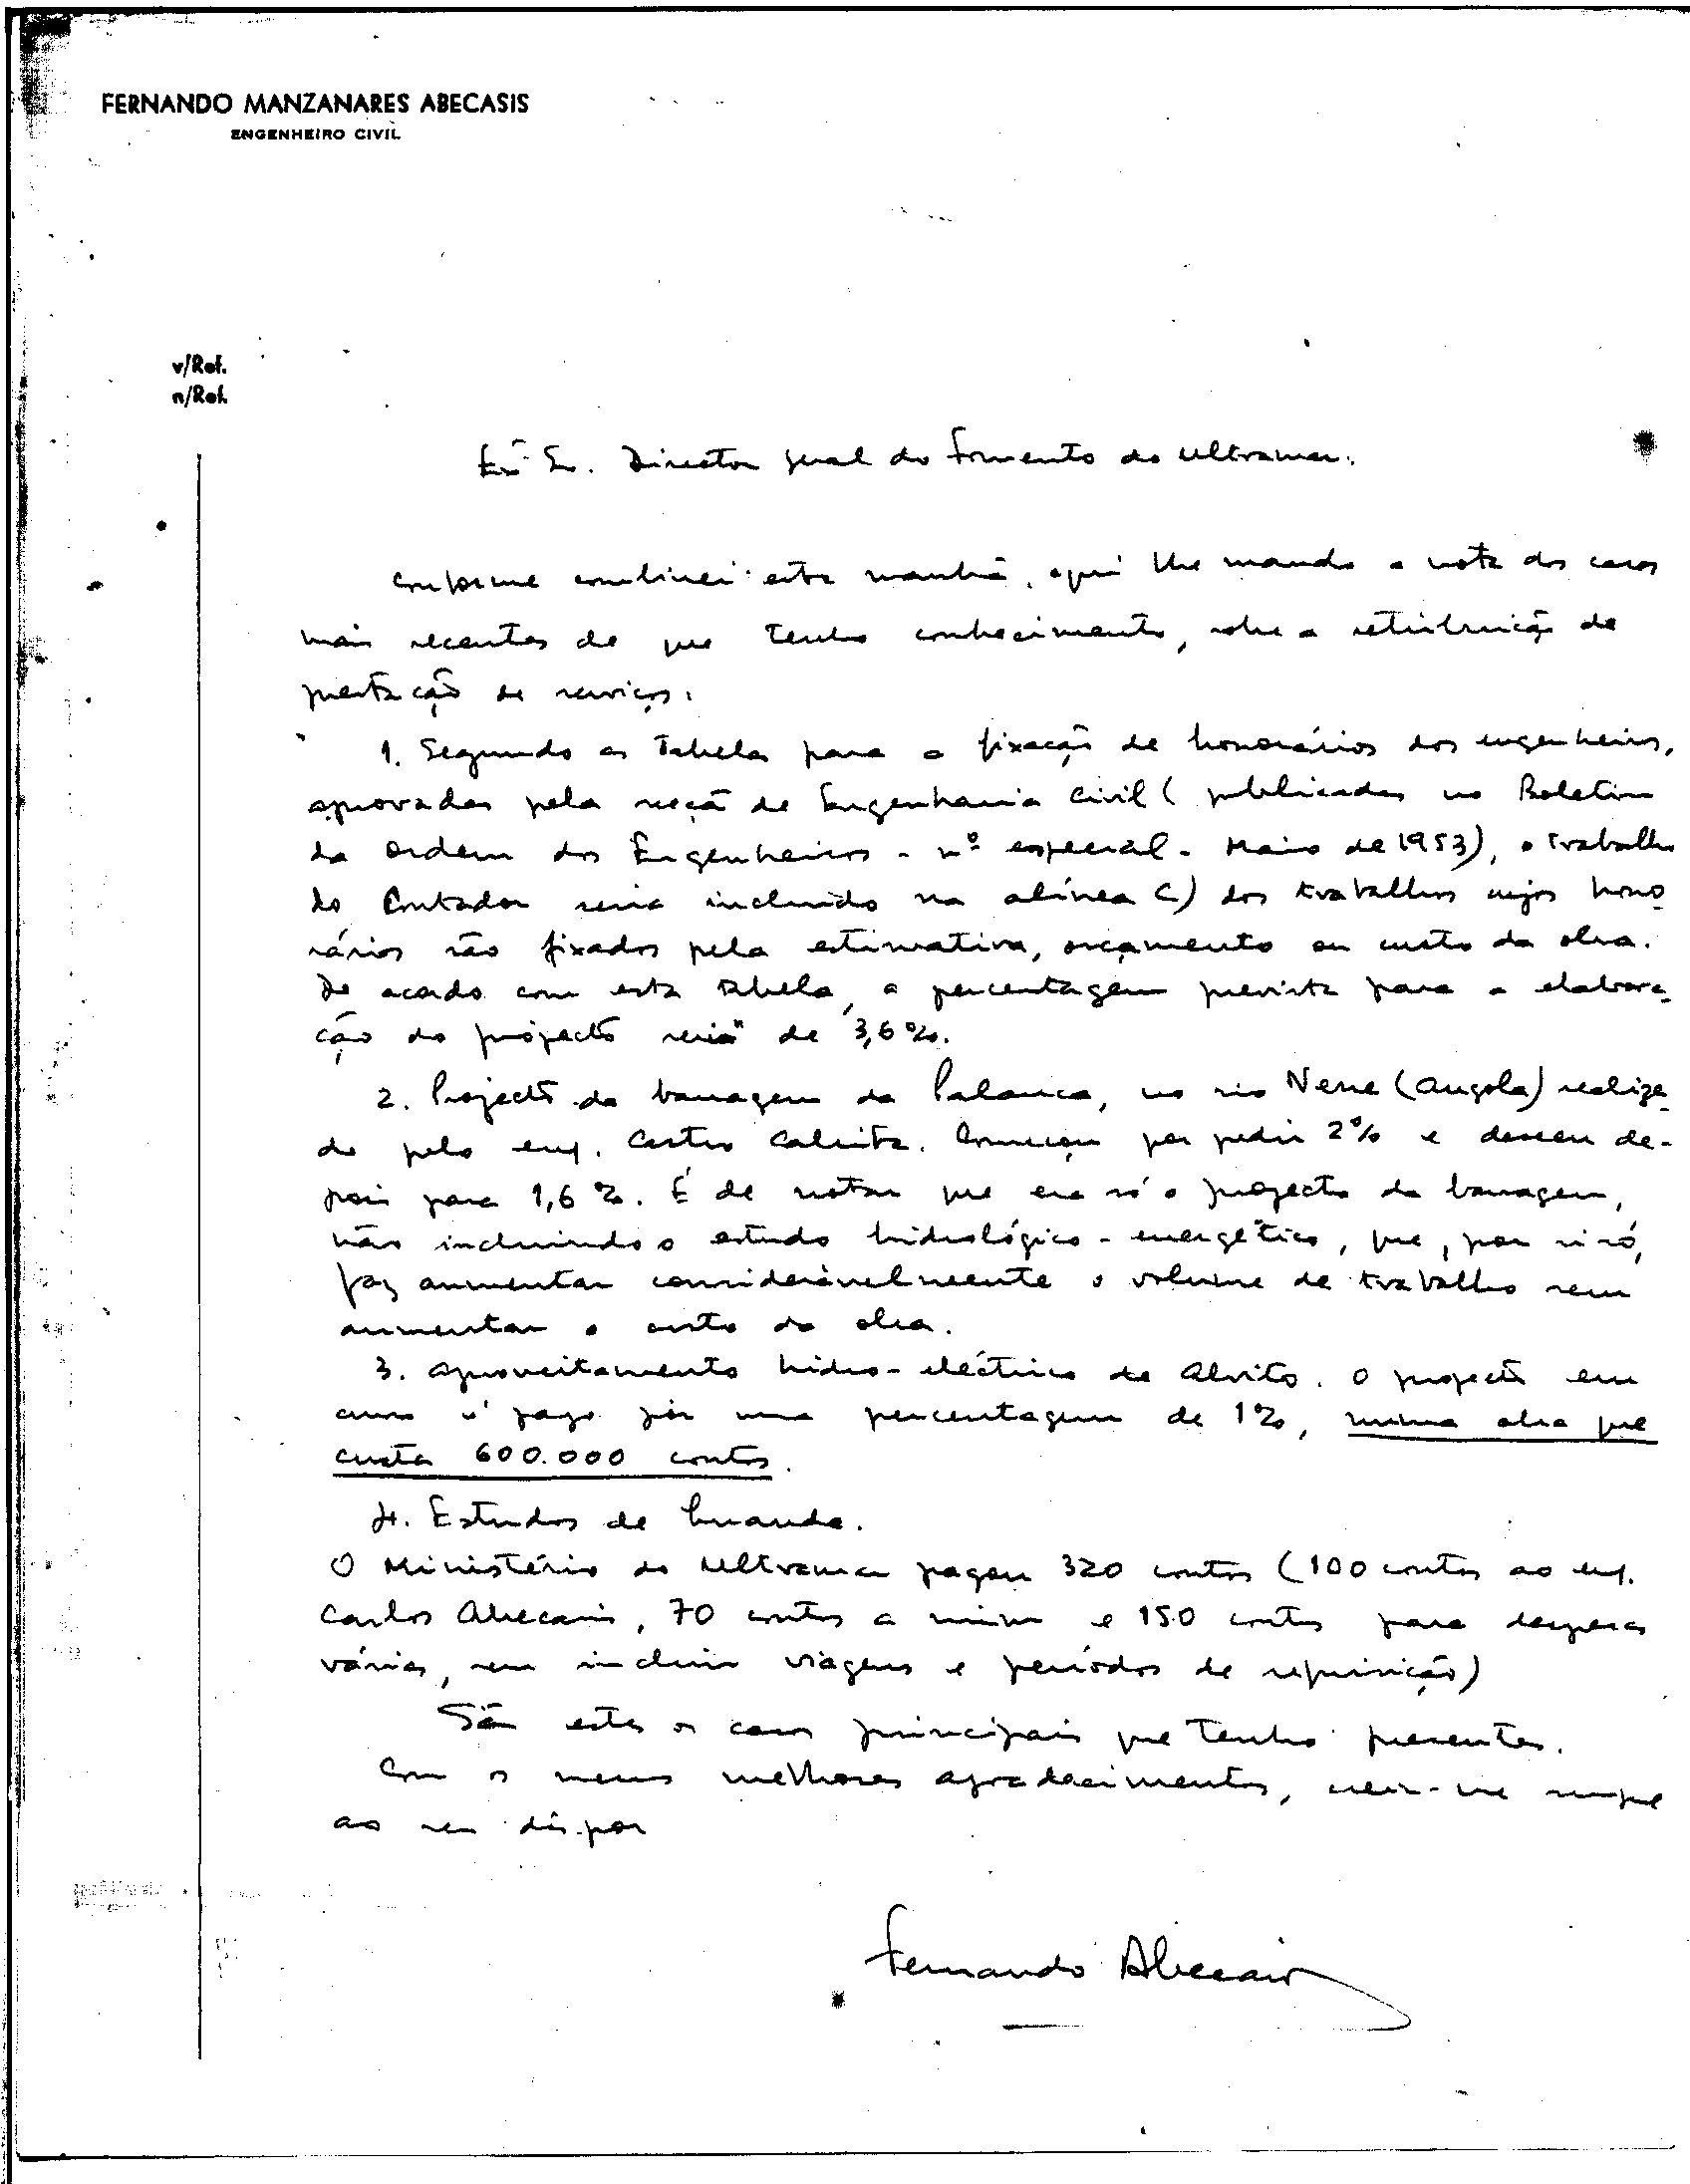 FERNANDO MANZANARES ABECASIS
ENGENHEIRO CIVIL
v/Ref.
n/Ref.
Director geral do Fomento do Ultramar.
conforme combinei esta manhã, aqui lhe mando a nota dos casos
mais recentes de que tenho conhecimento, sobre a retribuição de
prestação de serviços:
1. Segundo as Tabelas para a fixação de honorários dos engenheiros,
aprovadas pela secção de Engenharia Civil (publicadas no Boletim
da Ordem dos Engenheiros - nº especial - Maio de 1953), o trabalho
do Contador seria incluído na alínea C) dos trabalhos cujos hono-
rários são fixados pela estimativa, orçamento ou custo da obra.
De acordo com esta tabela, a percentagem prevista para a elabora-
ção do projecto seria de 3,6%.
2. Projecto da barragem da Palanca, no rio Nene (Angola) realiza-
do pelo eng. Castro Cabrita. Começou por pedir 2% e desceu de-
pois para 1,6%. É de notar que era só o projecto da barragem,
não incluindo o estudo hidrológico-energético, que, por si só,
faz aumentar consideràvelmente o volume de trabalho sem
aumentar o custo da obra.
3. Aproveitamento hidro-eléctrico do Alvito. O projecto em
curso é pago por uma percentagem de 1%, numa obra que
custa 600.000 contos.
4. Estudos de Luanda.
O Ministério do Ultramar pagou 320 contos (100 contos ao eng.
Carlos Abecasis, 70 contos a mim e 150 contos para despesas
várias, sem incluir viagens e períodos de requisição)
São estes os casos principais que tenho presentes.
Com os meus melhores agradecimentos, creia-me sempre
ao seu dispor
Fernando Abecasis